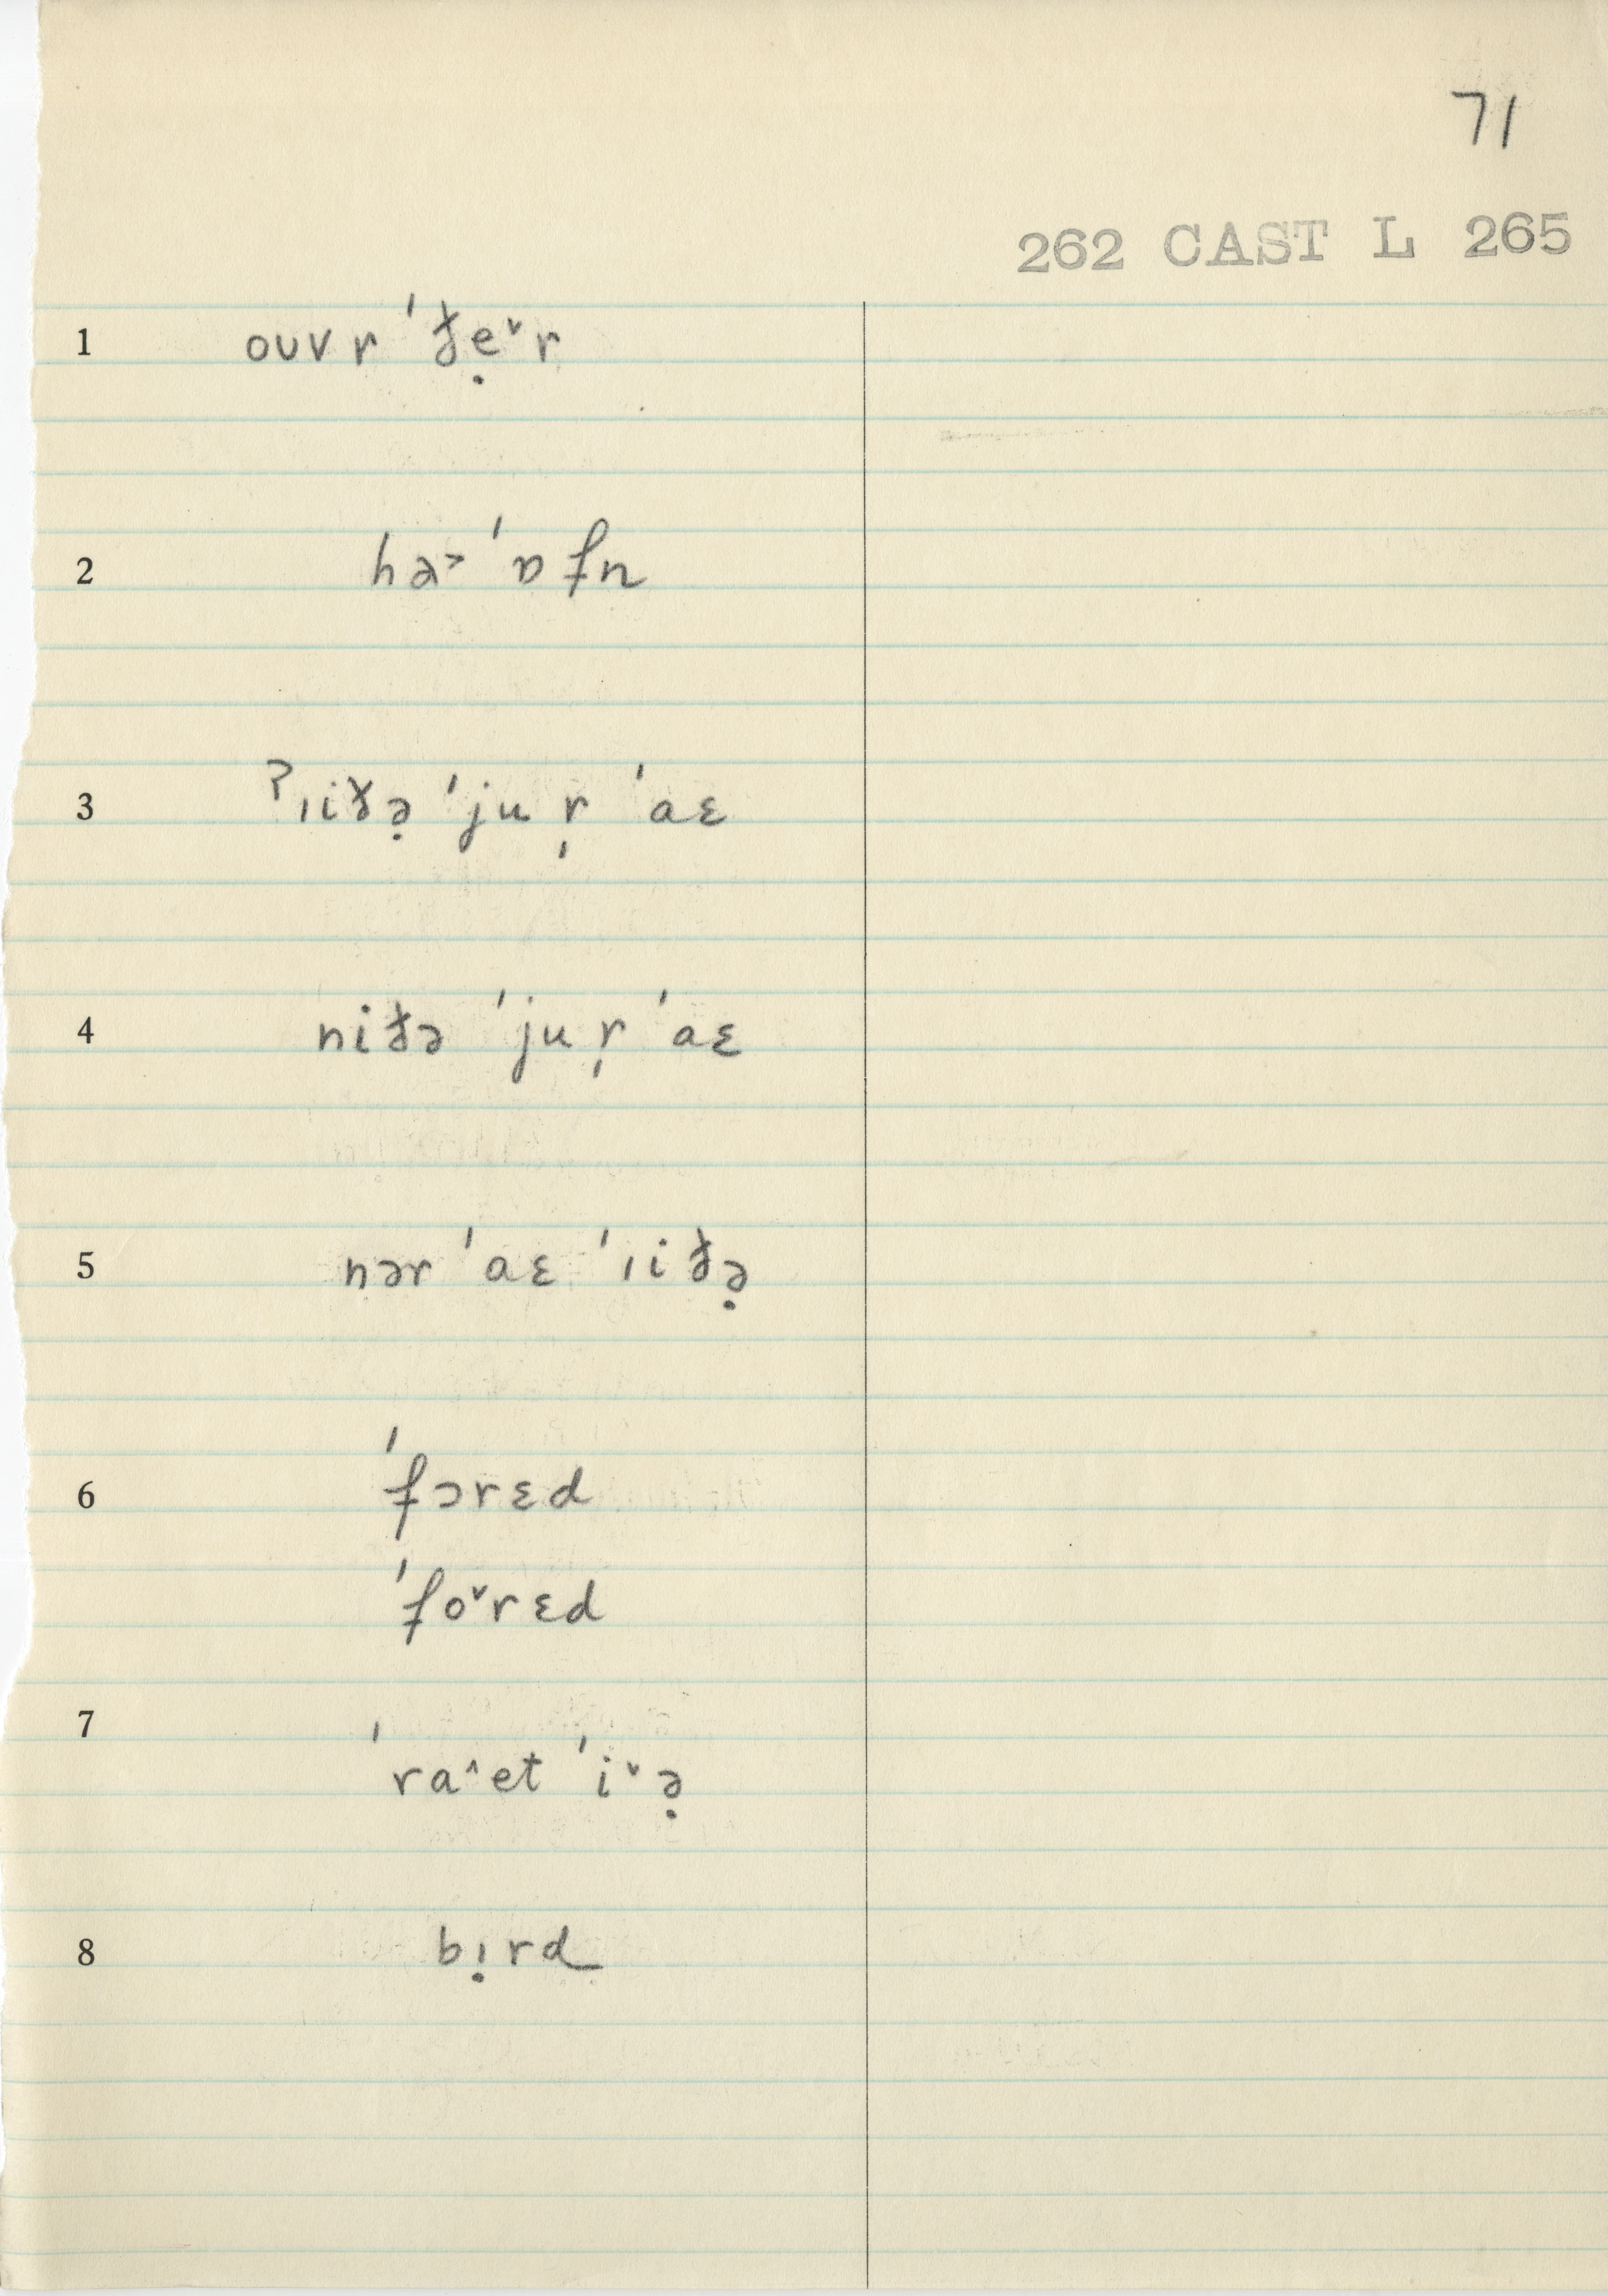 71
262 CAST L 265
1 ouvr ˈðẹ˅r
2 hə˃ ˈɒfn
3 ˀıiðə̣ ˈjur̩ ˈaɛ
4 niðə ˈjur̩ ˈaɛ
5 nər ˈaɛ ˈıiðə̣
6 ˈfɔrɛd
ˈfo˅rɛd
7 ˈra˄et ˈi˅ə̣
8 bı̣rd